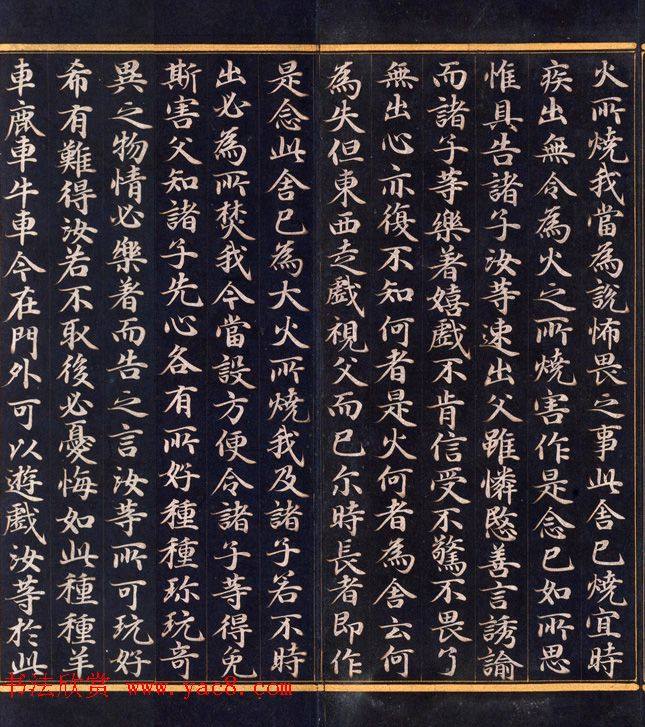 火所燒我當為說怖畏之事此舍已燒宜時
疾出無令為火之所燒害作是念已如所思
惟具告諸子汝等速出父雖憐愍善言誘諭
而諸子等樂著嬉戲不肯信受不驚不畏了
無出心亦復不知何者是火何者為舍云何
為失但東西走戲視父而已尔時長者即作
是念此舍已為大火所燒我及諸子若不時
出必為所焚我今當設方便令諸子等得免
斯害父知諸子先心各有所好種種珎玩奇
異之物情必樂著而告之言汝等所可玩好
希有難得汝若不取後必憂悔如此種種羊
車鹿車牛車今在門外可以遊戲汝等於此
书法欣赏 www.yac8.com